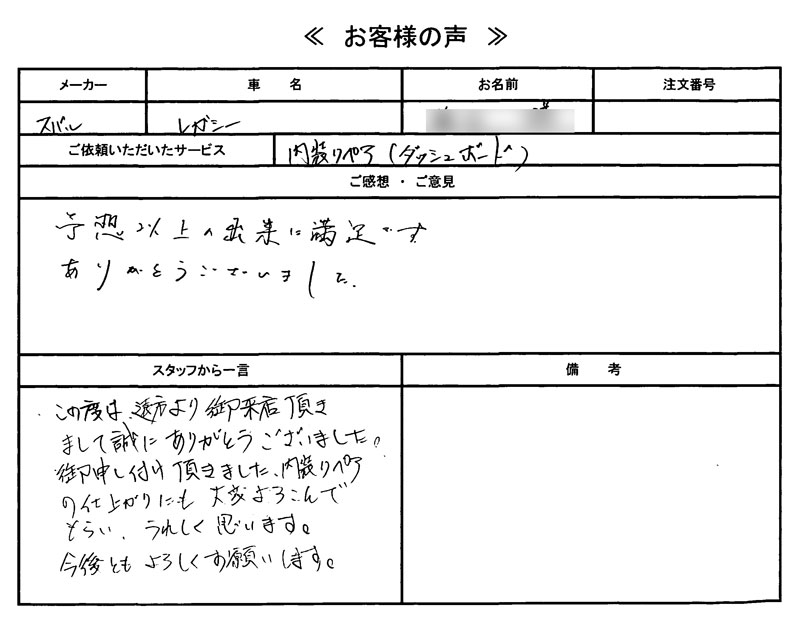 ≪ お客様の声 ≫
メーカー 車 名 お名前 注文番号
スバル レガシー
ご依頼いただいたサービス 内装リペア(ダッシュボード)
ご感想・ご意見
予想以上の出来に満足です
ありがとうございました.
スタッフから一言 備 考
この度は、遠方より御来店頂き
まして誠にありがとうございました。
御申し付け頂きました、内装リペア
の仕上がりにも大変よろこんで
もらい、うれしく思います。
今後ともよろしくお願いします。